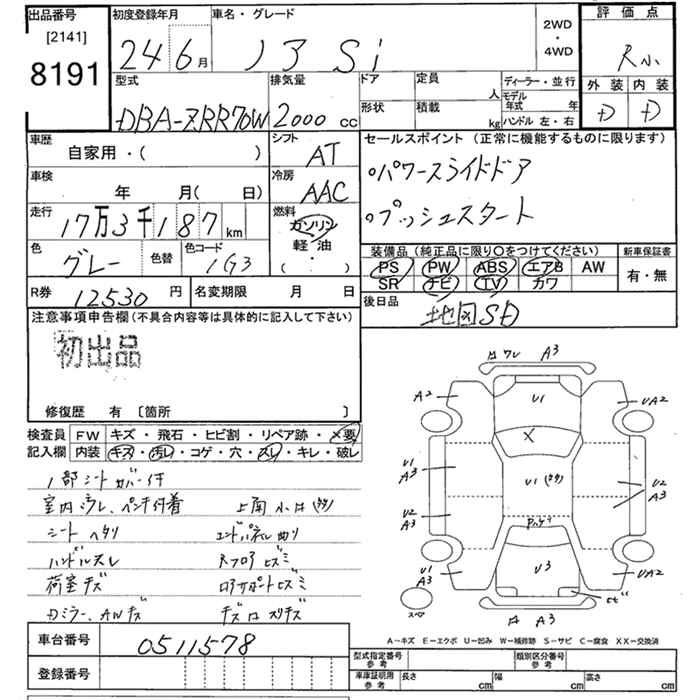 出品番号
[2141]
8191
初度登録年月
24 6月
車名・グレード
ノア Si
2WD
・
4WD
評価点
R小
外装 内装
D D
型式
DBA-ZRR70W
排気量
2000 CC
ドア
定員
人
形状
積載
kg
ディーラー・並行
モデル年式 年
ハンドル 左・右
車歴
自家用・( )
シフト
AT
車検
年 月( 日)
冷房
AAC
走行
17万3千187km
燃料
ガソリン
軽油
( ・ )
色
グレー
色替
色コード
1G3
R券
12530円
名変期限 月 日
セールスポイント (正常に機能するものに限ります)
○パワースライドドア
○プッシュスタート
装備品 (純正品に限り○をつけてください)
新車保証書
PS PW ABS エアB AW
SR ナビ TV カワ
有・無
後日品
地図SD
注意事項申告欄 (不具合内容等は具体的に記入して下さい)
初出品
修復歴 有 〔箇所 〕
検査員
記入欄
FW キズ・飛石・ヒビ割・リペア跡・×要
内装 キズ・汚レ・コゲ・穴・スレ・キレ・破レ
1部シートカバー付
室内汚レ、ペンキ付着
シートヘタリ
ハンドルスレ
荷室キズ
Dミラー、AWキズ
エンドパネル曲リ
Rフロアヒズミ
ロアサポートヒズミ
車台番号
0511578
登録番号
ワレ A3
A2
U1
UA2
X
U1
A3
U1
U2
A3
U2
A3
U1
A3
U3
UA2
スペア
A3
A-キズ E-エクボ U-凹み W-補修跡 S-サビ C-腐食 XX-交換済
型式指定番号
参考
類別区分番号
参考
車庫証明用
参考
長さ cm
幅 cm
高さ cm